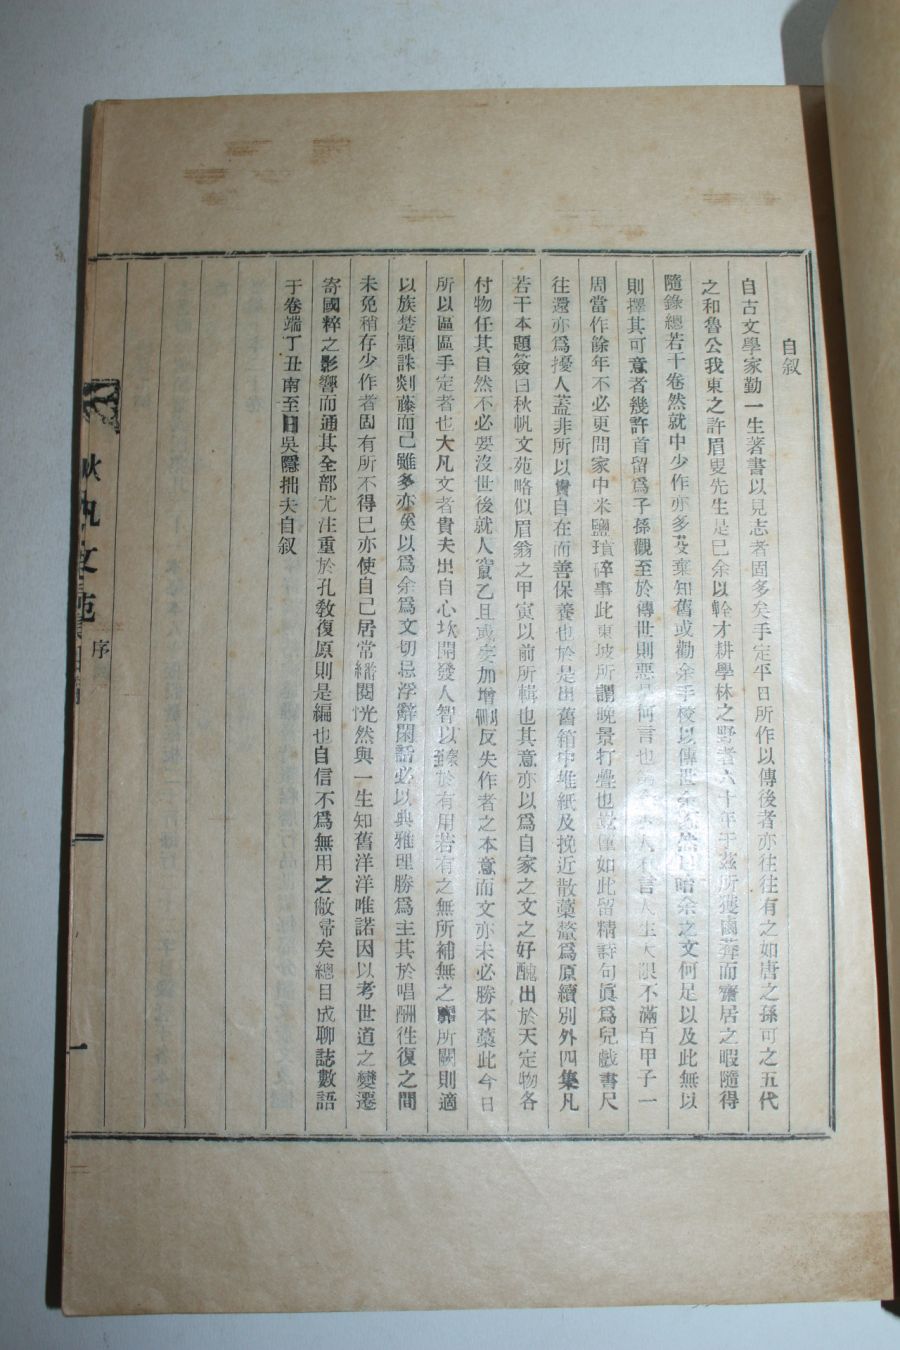 自叙
自古文學家勤一生著書以見志者固多矣手定平日所作以傳後者亦往往有之如唐之孫可之五代
之和魯公我東之許眉叟先生是已余以輇才耕學林之野者六十年于茲所獲鹵莽而齋居之暇隨得
隨錄總若干卷然就中少作亦多芟棄知舊或勸余手校以傳世余之文何足以及此無以
則擇其可意者幾許首留爲子孫觀至於傳世則惡是何言也言人生大限不滿百甲子一
周當作餘年不必更問家中米鹽瑣碎事此東坡所謂晚景打疊也乾僅如此留精詩句眞爲兒戲書尺
往還亦爲擾人蓋非所以實自在而善保養也於是出舊箱中堆紙及挽近散藁釐爲原續別外四集凡
若干本題簽曰秋帆文苑略似眉翁之甲寅以前所輯也其意亦以爲自家之文之好醜出於天定物各
付物任其自然不必要沒世後就人竄乙且或妄加增刪反失作者之本意而文亦未必勝本藁此今日
所以區區手定者也大凡文者貴夫出自心坎開發人智以臻於有用若有之無所補無之靡所闕則適
以族楚穎誅剡藤而已雖多亦奚以爲余爲文切忌浮辭閑話必以典雅理勝爲主其於唱酬徃復之間
未免稍存少作者固有所不得已亦使自己居常繙閱恍然與一生知舊洋洋唯諾因以考世道之變遷
寄國粹之影響而通其全部尤注重於孔敎復原則是編也自信不爲無用之敝帚矣總目成聊誌數語
于卷端丁丑南至日吳隱拙夫自叙
秋帆文苑
序
一